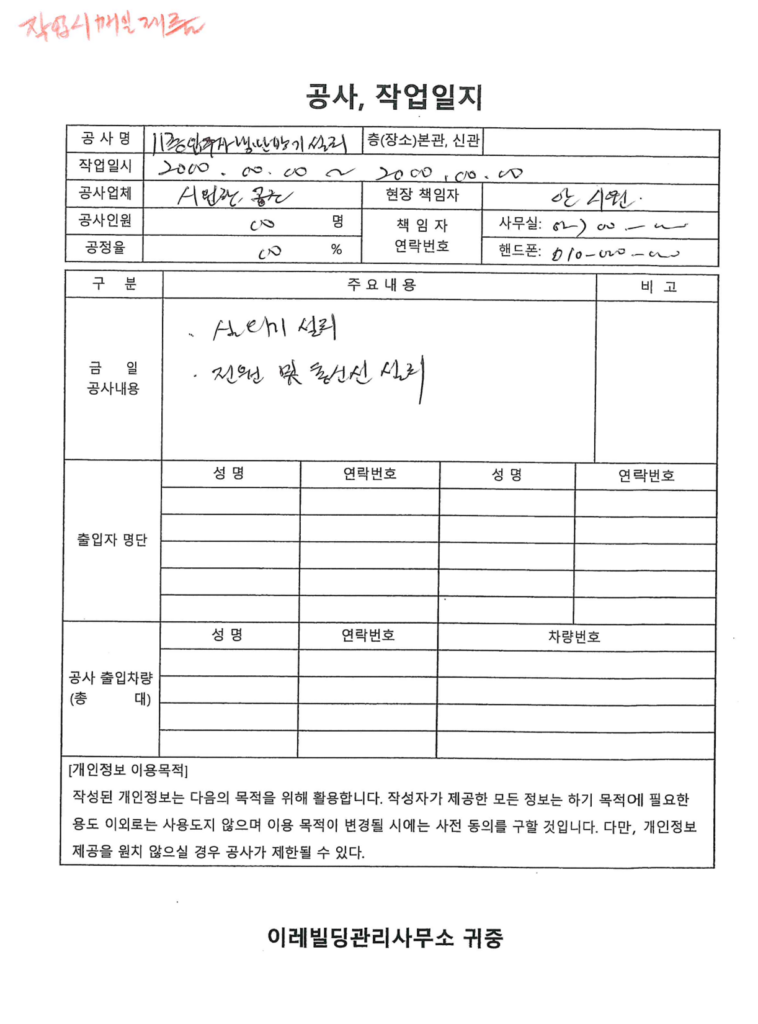 작업시 매일 제출
공사, 작업일지
공 사 명 11층 입주자 냉난방기 설치 층(장소)본관, 신관
작업일시 2000.00.00 ~ 2000.00.00
공사업체 시원한. 공조 현장 책임자 안 시원.
공사인원 00 명 책 임 자 사무실: 02) 00 -
공정율 00 % 연락번호 핸드폰: 010-000-000
구 분 주 요 내 용 비 고
금 일 공사내용
· 실외기 설치
· 전원 및 통신선 설치
출입자 명단
성 명 연락번호 성 명 연락번호
공사 출입차량
(총 대)
성 명 연락번호 차량번호
[개인정보 이용목적]
작성된 개인정보는 다음의 목적을 위해 활용합니다. 작성자가 제공한 모든 정보는 하기 목적에 필요한
용도 이외로는 사용도지 않으며 이용 목적이 변경될 시에는 사전 동의를 구할 것입니다. 다만, 개인정보
제공을 원치 않으실 경우 공사가 제한될 수 있다.
이레빌딩관리사무소 귀중